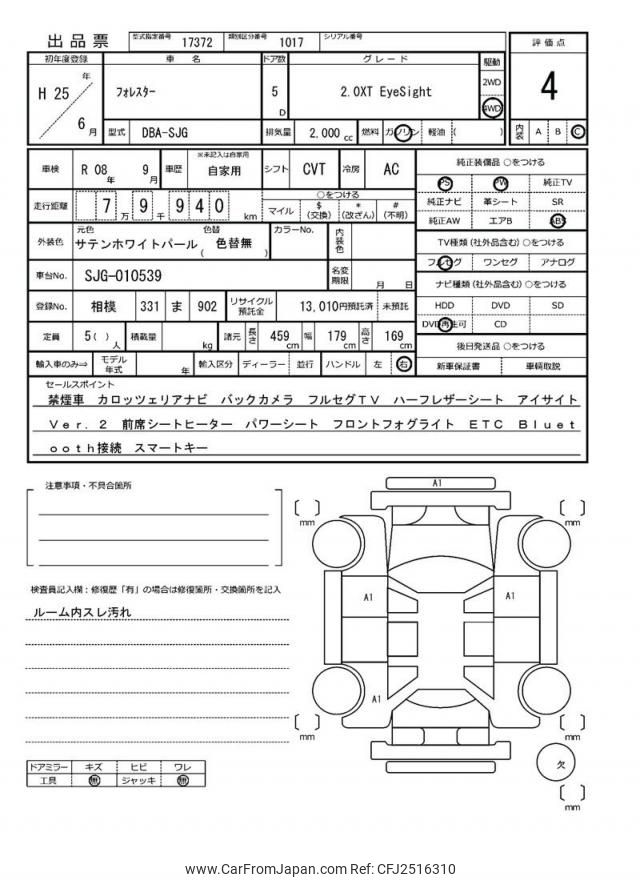 出品票
型式指定番号 17372 類別区分番号 1017 シリアル番号
初年度登録 車名 ドア数 グレード 駆動 評価点
H 25 年 6 月 フォレスター 5 D 2.0XT EyeSight 2WD 4WD 4
型式 DBA-SJG 排気量 2,000 cc 燃料 ガソリン 軽油 ( ) 内装 A B C
車検 R 08 年 9 月 車歴 ※未記入は自家用 自家用 シフト CVT 冷房 AC
純正装備品 ○をつける
PS PW 純正TV
純正ナビ 革シート SR
純正AW エアB ABS
走行距離 7 万 9 千 9 4 0 km
○をつける
マイル $ (交換) * (改ざん) # (不明)
外装色 元色 サテンホワイトパール 色替 ( 色替無 ) カラーNo. 内装色
TV種類 (社外品含む) ○をつける
フルセグ ワンセグ アナログ
車台No. SJG-010539 名変期限 月 日
ナビ種類 (社外品含む) ○をつける
HDD DVD SD
DVD再生可 CD
登録No. 相模 331 ま 902 リサイクル預託金 13,010円預託済 未預託
定員 5 ( ) 人 積載量 kg 諸元 長さ 459 cm 幅 179 cm 高さ 169 cm
後日発送品 ○をつける
新車保証書 車輌取説
輸入車のみ⇒ モデル年式 年 輸入区分 ディーラー 並行 ハンドル 左 右
セールスポイント
禁煙車 カロッツェリアナビ バックカメラ フルセグTV ハーフレザーシート アイサイト
Ver.2 前席シートヒーター パワーシート フロントフォグライト ETC Bluet
ooth接続 スマートキー
注意事項・不具合箇所
検査員記入欄:修復歴「有」の場合は修復箇所・交換箇所を記入
ルーム内スレ汚れ
ドアミラー キズ ヒビ ワレ
工具 無 ジャッキ 無
A1
mm
mm
A1
A1
A1
mm
mm
欠
mm
www.CarFromJapan.com Ref: CFJ2516310